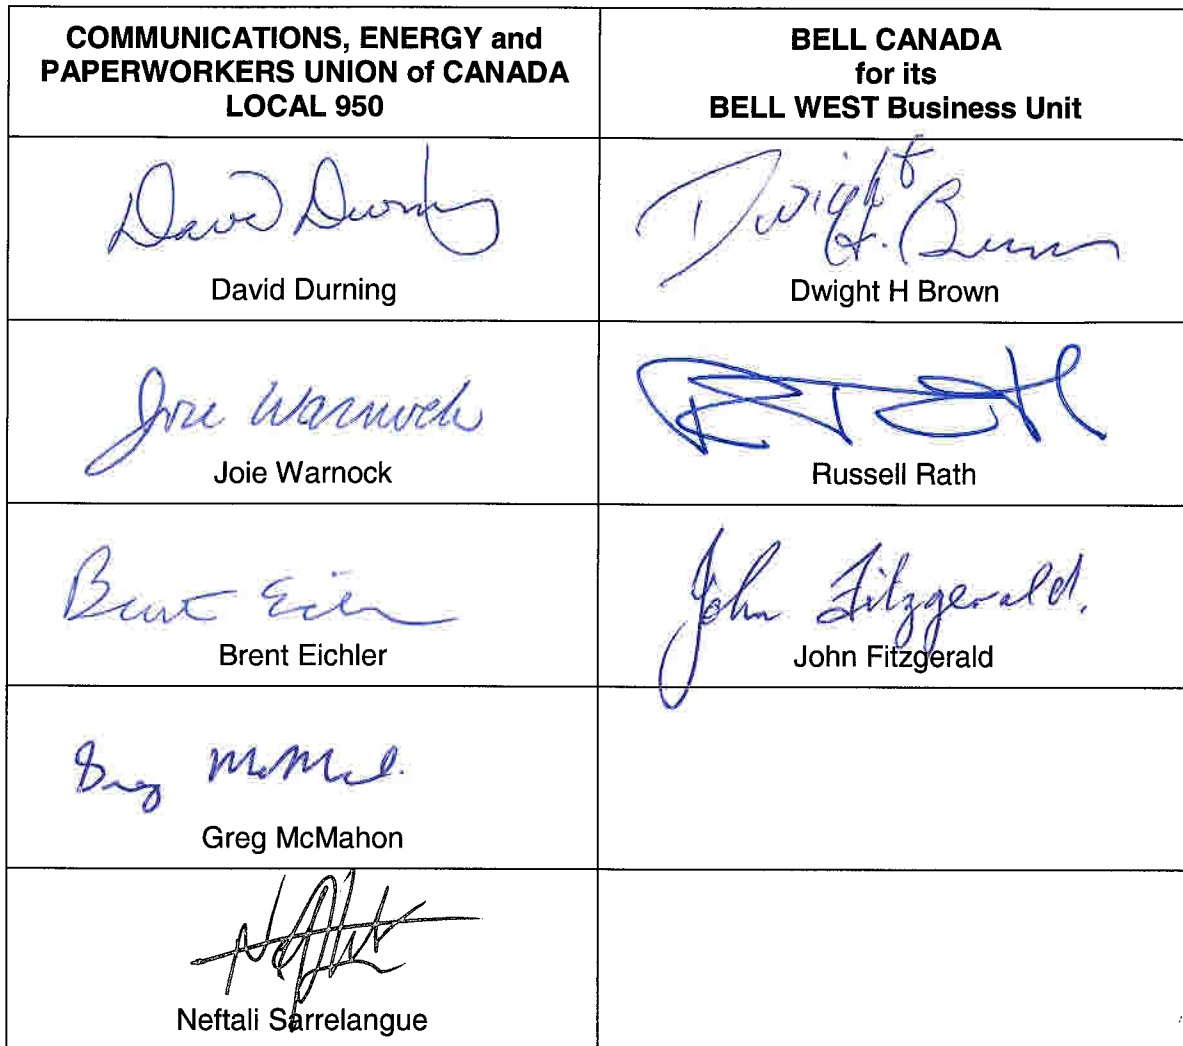 COMMUNICATIONS, ENERGY and
PAPERWORKERS UNION of CANADA
LOCAL 950
BELL CANADA
for its
BELL WEST Business Unit
David Durning
David Durning
Dwight H. Brown
Dwight H Brown
Joie Warnock
Joie Warnock
Russell Rath
Brent Eichler
John Fitzgerald.
John Fitzgerald
Greg McMahon
Neftali Sarrelangue